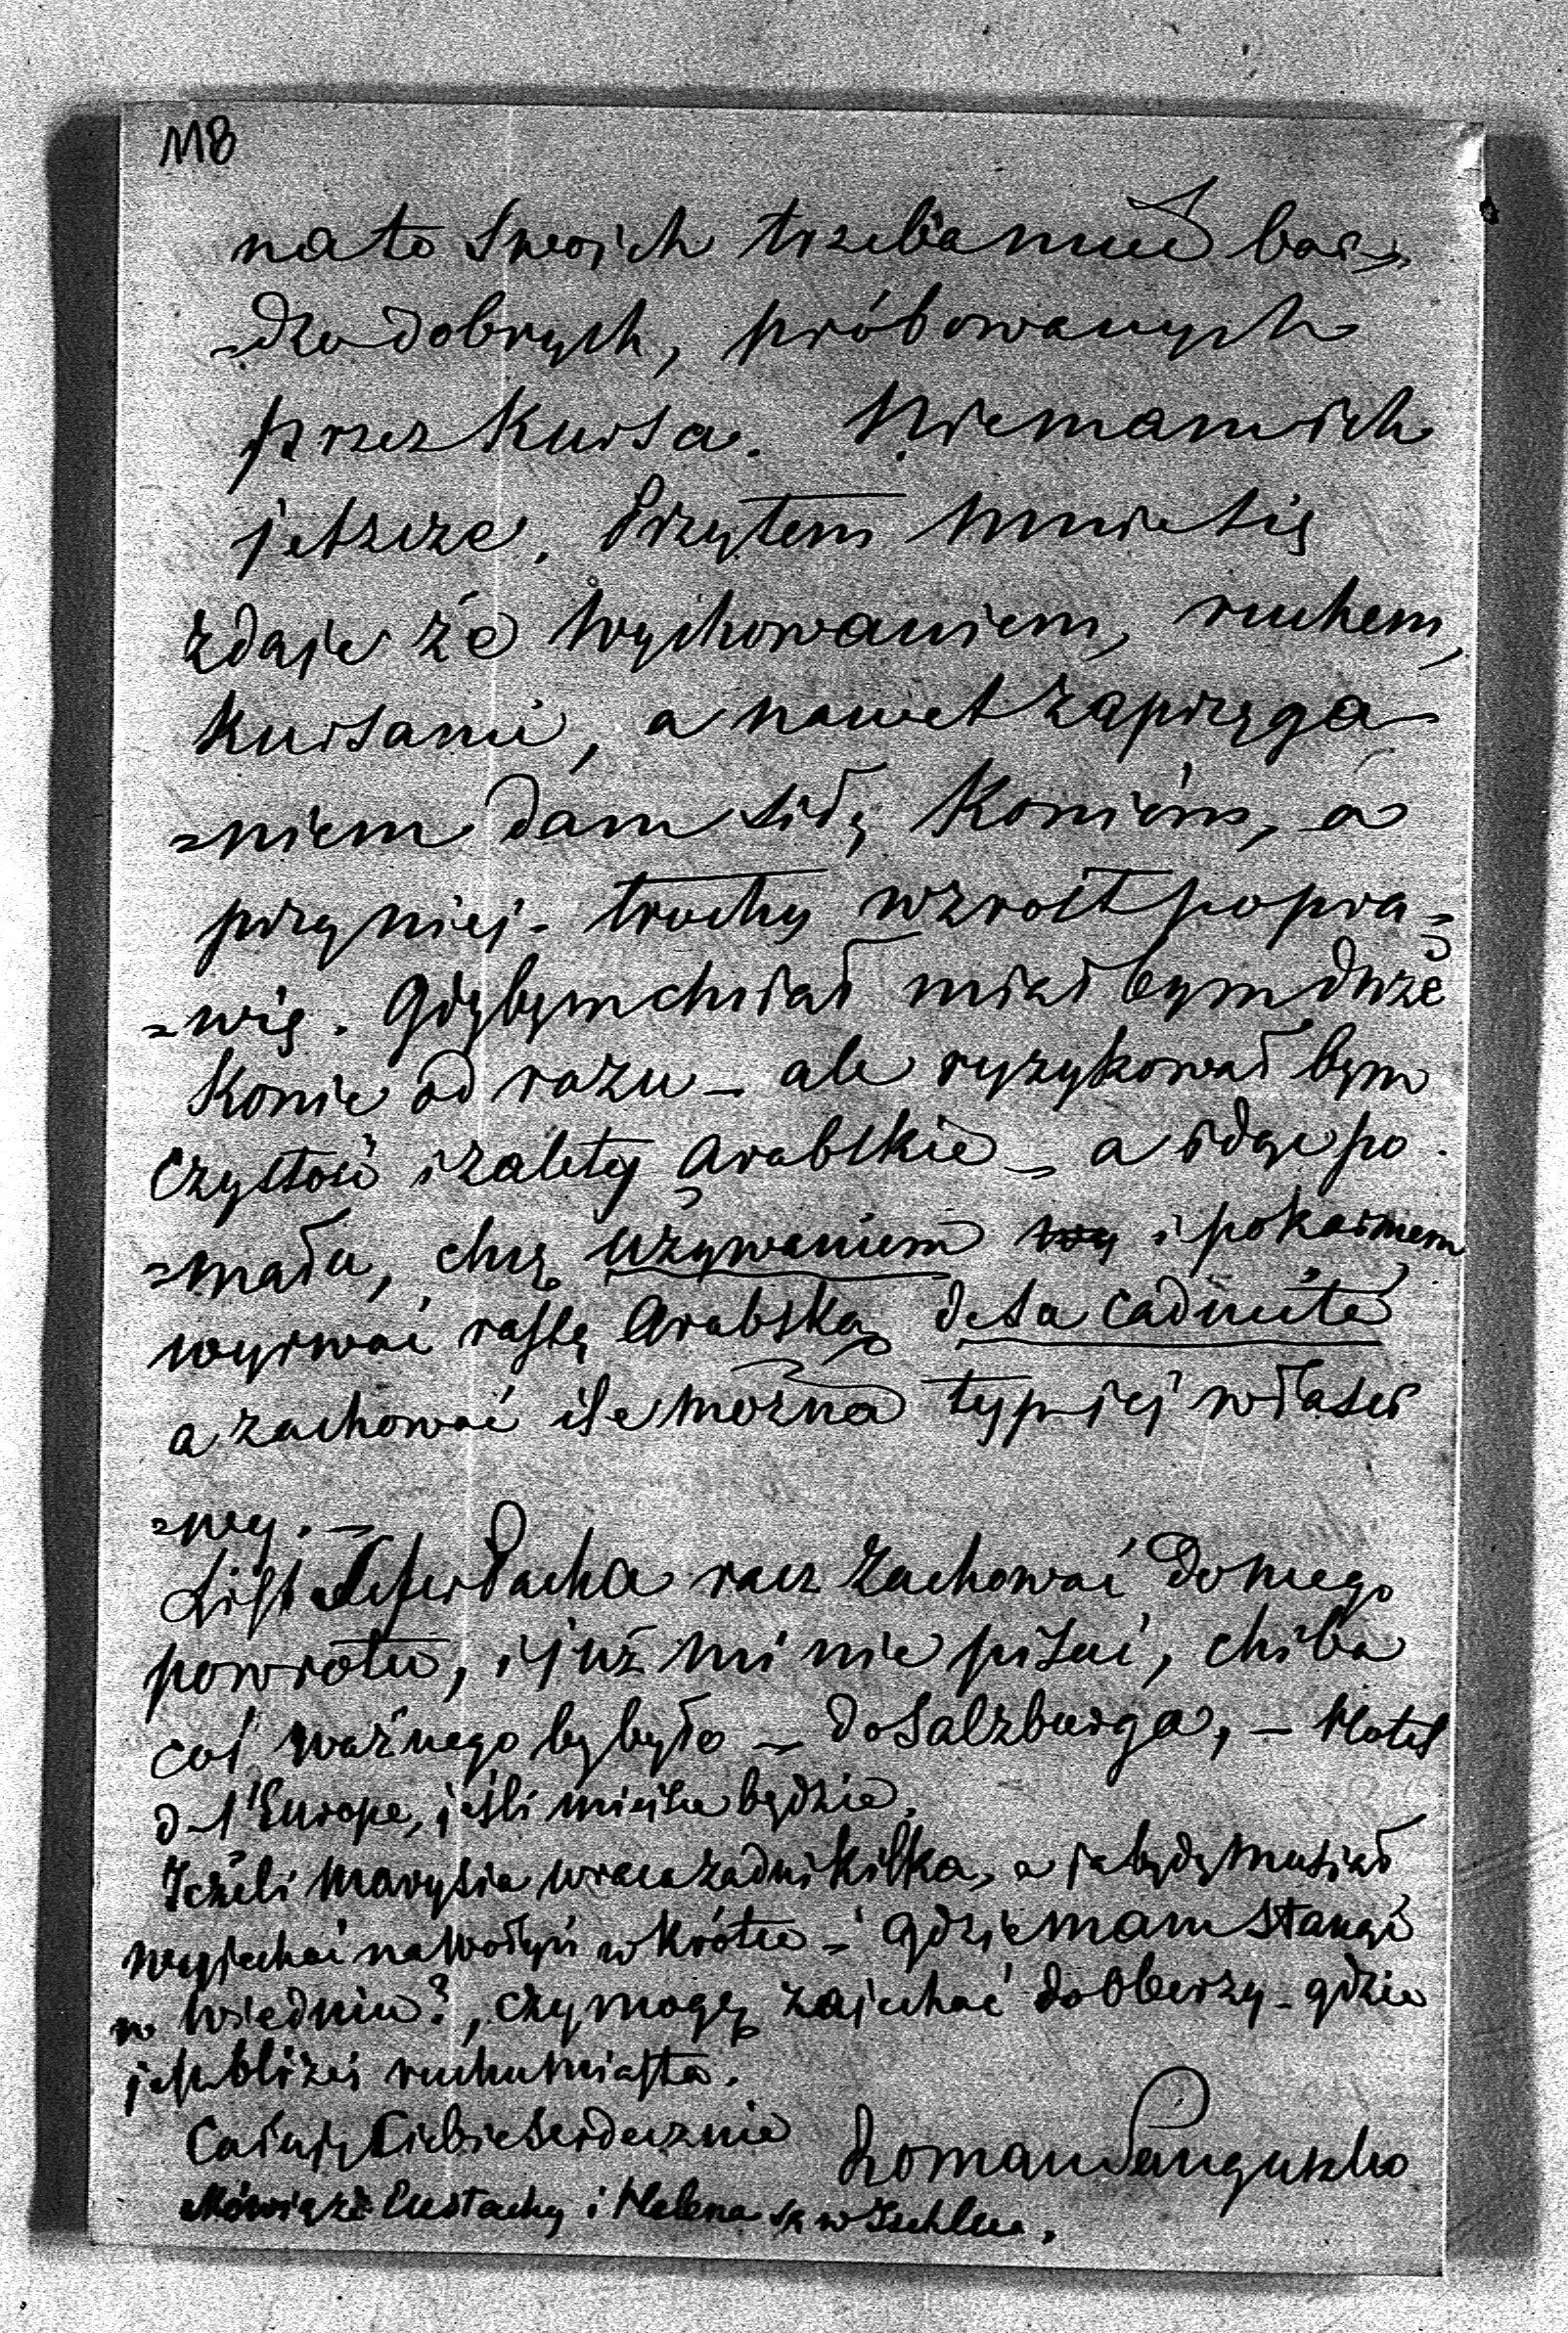 118
na to swoich trzeba mieć bar=
=dzo dobrych, próbowanych
przez kursa. Niemam ich
jeszcze. Przytem mnie się
zdaje że wychowaniem, ruchem,
kursami, a nawet zaprzęga
=niem dam siłę koniem, a
przy niej - trochę wzrost popra=
=wię. Gdybym chciał miałbym duże
konie od razu - ale ryzykował bym
czystość i zalety Arabskie - a idąc po
=mału, chcę używaniem wy i pokarmem
wyrwać rassę Arabską de sa caducité
a zachować ile można typ jej właści
=wy. -
List Sefer Pacha racz zachować do mego
powrotu, i już mi nie pisać, chiba
coś ważnego by było - do Salzburga, - Hotel
d l'Europe, jeśli miejsce będzie.
Jeżeli Marysia wraca za dni kilka, a ja będę musiał
wyjechać na Wołyń wkrótce - gdzie mam stanąć
w Wiedniu?, czy mogę zajechać do Oberży - gdzie
jest bliżej ruchu miasta.
Całuję Ciebie serdecznie Roman Sanguszko
Mówią że Eustachy i Helena są w Ischlu.